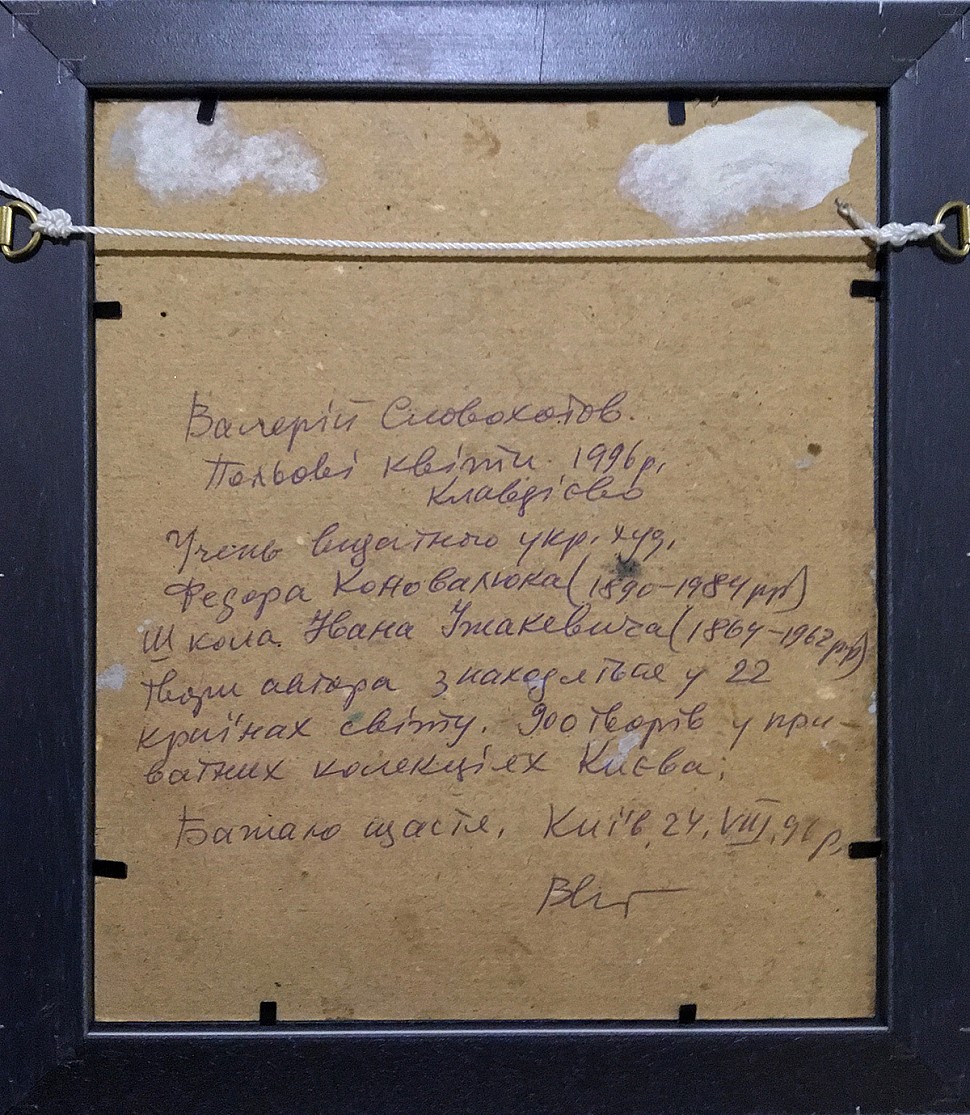 Валерій Словохотов.
Польові квіти. 1996р.
Клавдієво
Учень видатного укр. худ.
Федора Коновалюка (1890-1984рр)
Школа Івана Їжакевича (1864-1962рр)
твори автора знаходяться у 22
країнах світу. 900 творів у при-
ватних колекціях Києва.
Бажаю щастя. Київ, 24. VIII. 96 р.